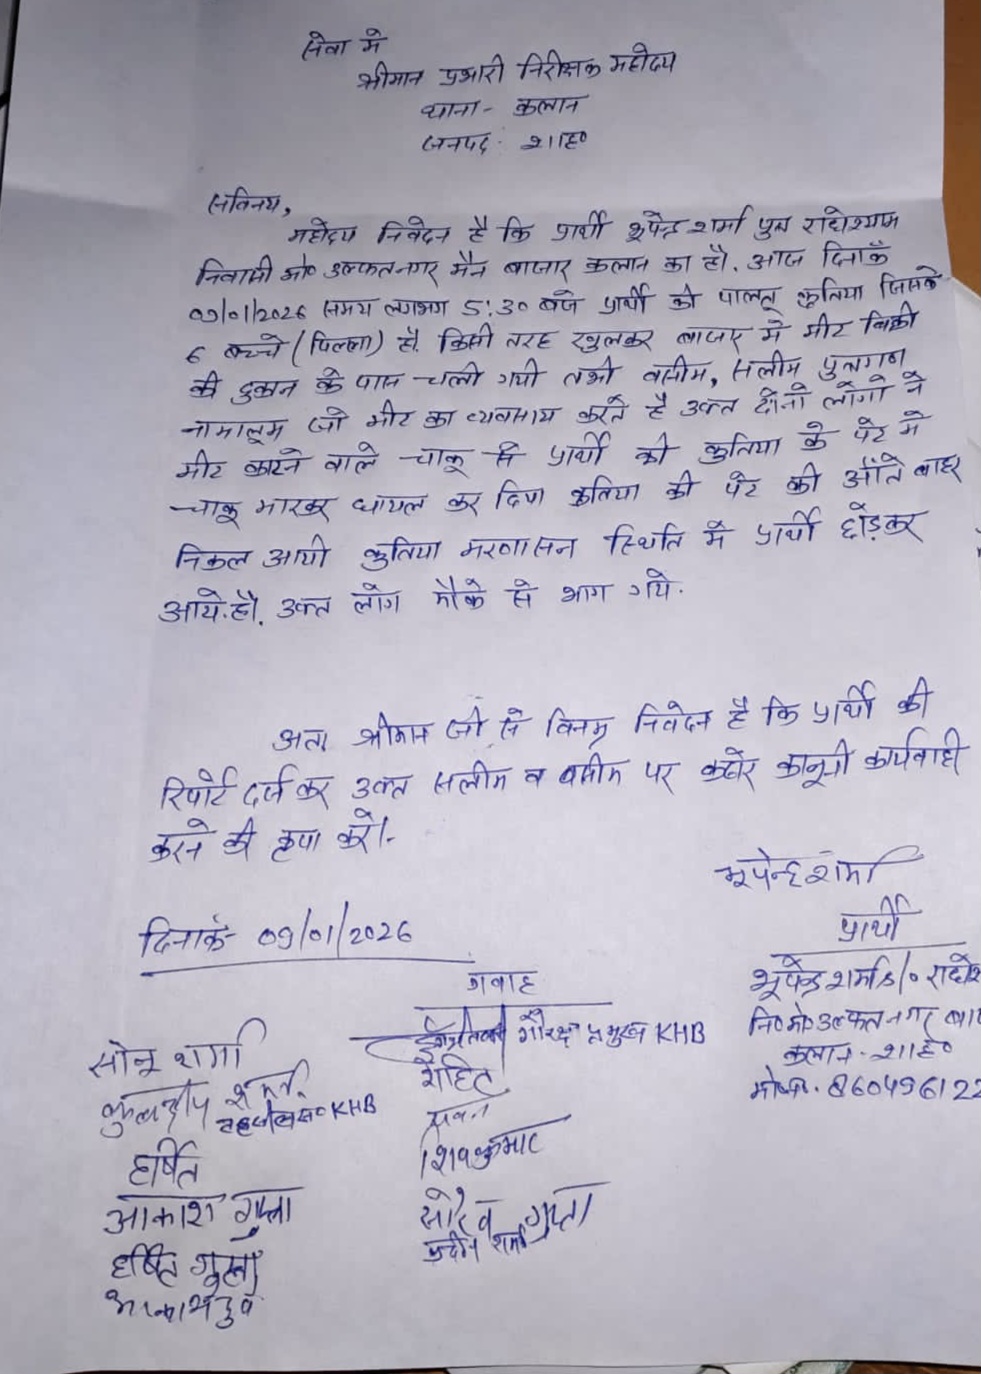 सेवा मे
श्रीमान प्रभारी निरीक्षक महोदय
थाना - कलान
जनपद - शाह०
सविनय,
महोदय निवेदन है कि प्रार्थी भूपेन्द्र शर्मा पुत्र राधेश्याम
निवासी मो० उल्फतनगर मैन बाजार कलान का है. आज दिनाँक
09/01/2026 समय लगभग 5:30 बजे प्रार्थी की पालतू कुतिया जिसके
6 बच्चे (पिल्ला) है. किसी तरह खुलकर बाजार मे मीट बिक्री
की दुकान के पास चली गयी तभी वसीम, सलीम पुत्रगण
नामालूम जो मीट का व्यवसाय करते है उक्त दोनो लोगो ने
मीट काटने वाले चाकू से प्रार्थी की कुतिया के पेट मे
चाकू मारकर घायल कर दिया कुतिया की पेट की आँते बाहर
निकल आयी कुतिया मरणासन स्थिति मे प्रार्थी छोड़कर
आये है. उक्त लोग मौके से भाग गये.
अतः श्रीमान जी से विनम्र निवेदन है कि प्रार्थी की
रिपोर्ट दर्ज कर उक्त सलीम व वसीम पर कठोर कानूनी कार्यवाही
करने की कृपा करे।-
भूपेन्द्र शर्मा
प्रार्थी
दिनांक- 09/01/2026
भूपेन्द्र शर्मा S/o राधेश
नि० मो० उल्फतनगर बा
कलान - शाह०
मो०न०. 860496122
गवाह
गौरक्षा प्रमुख KHB
सोनू शर्मा
रोहित
कुलदीप शर्मा
KHB
पवन
हर्षित
शिवकुमार
आकाश गुप्ता
सौरव गुप्ता
शर्मा
हर्षित गुप्ता